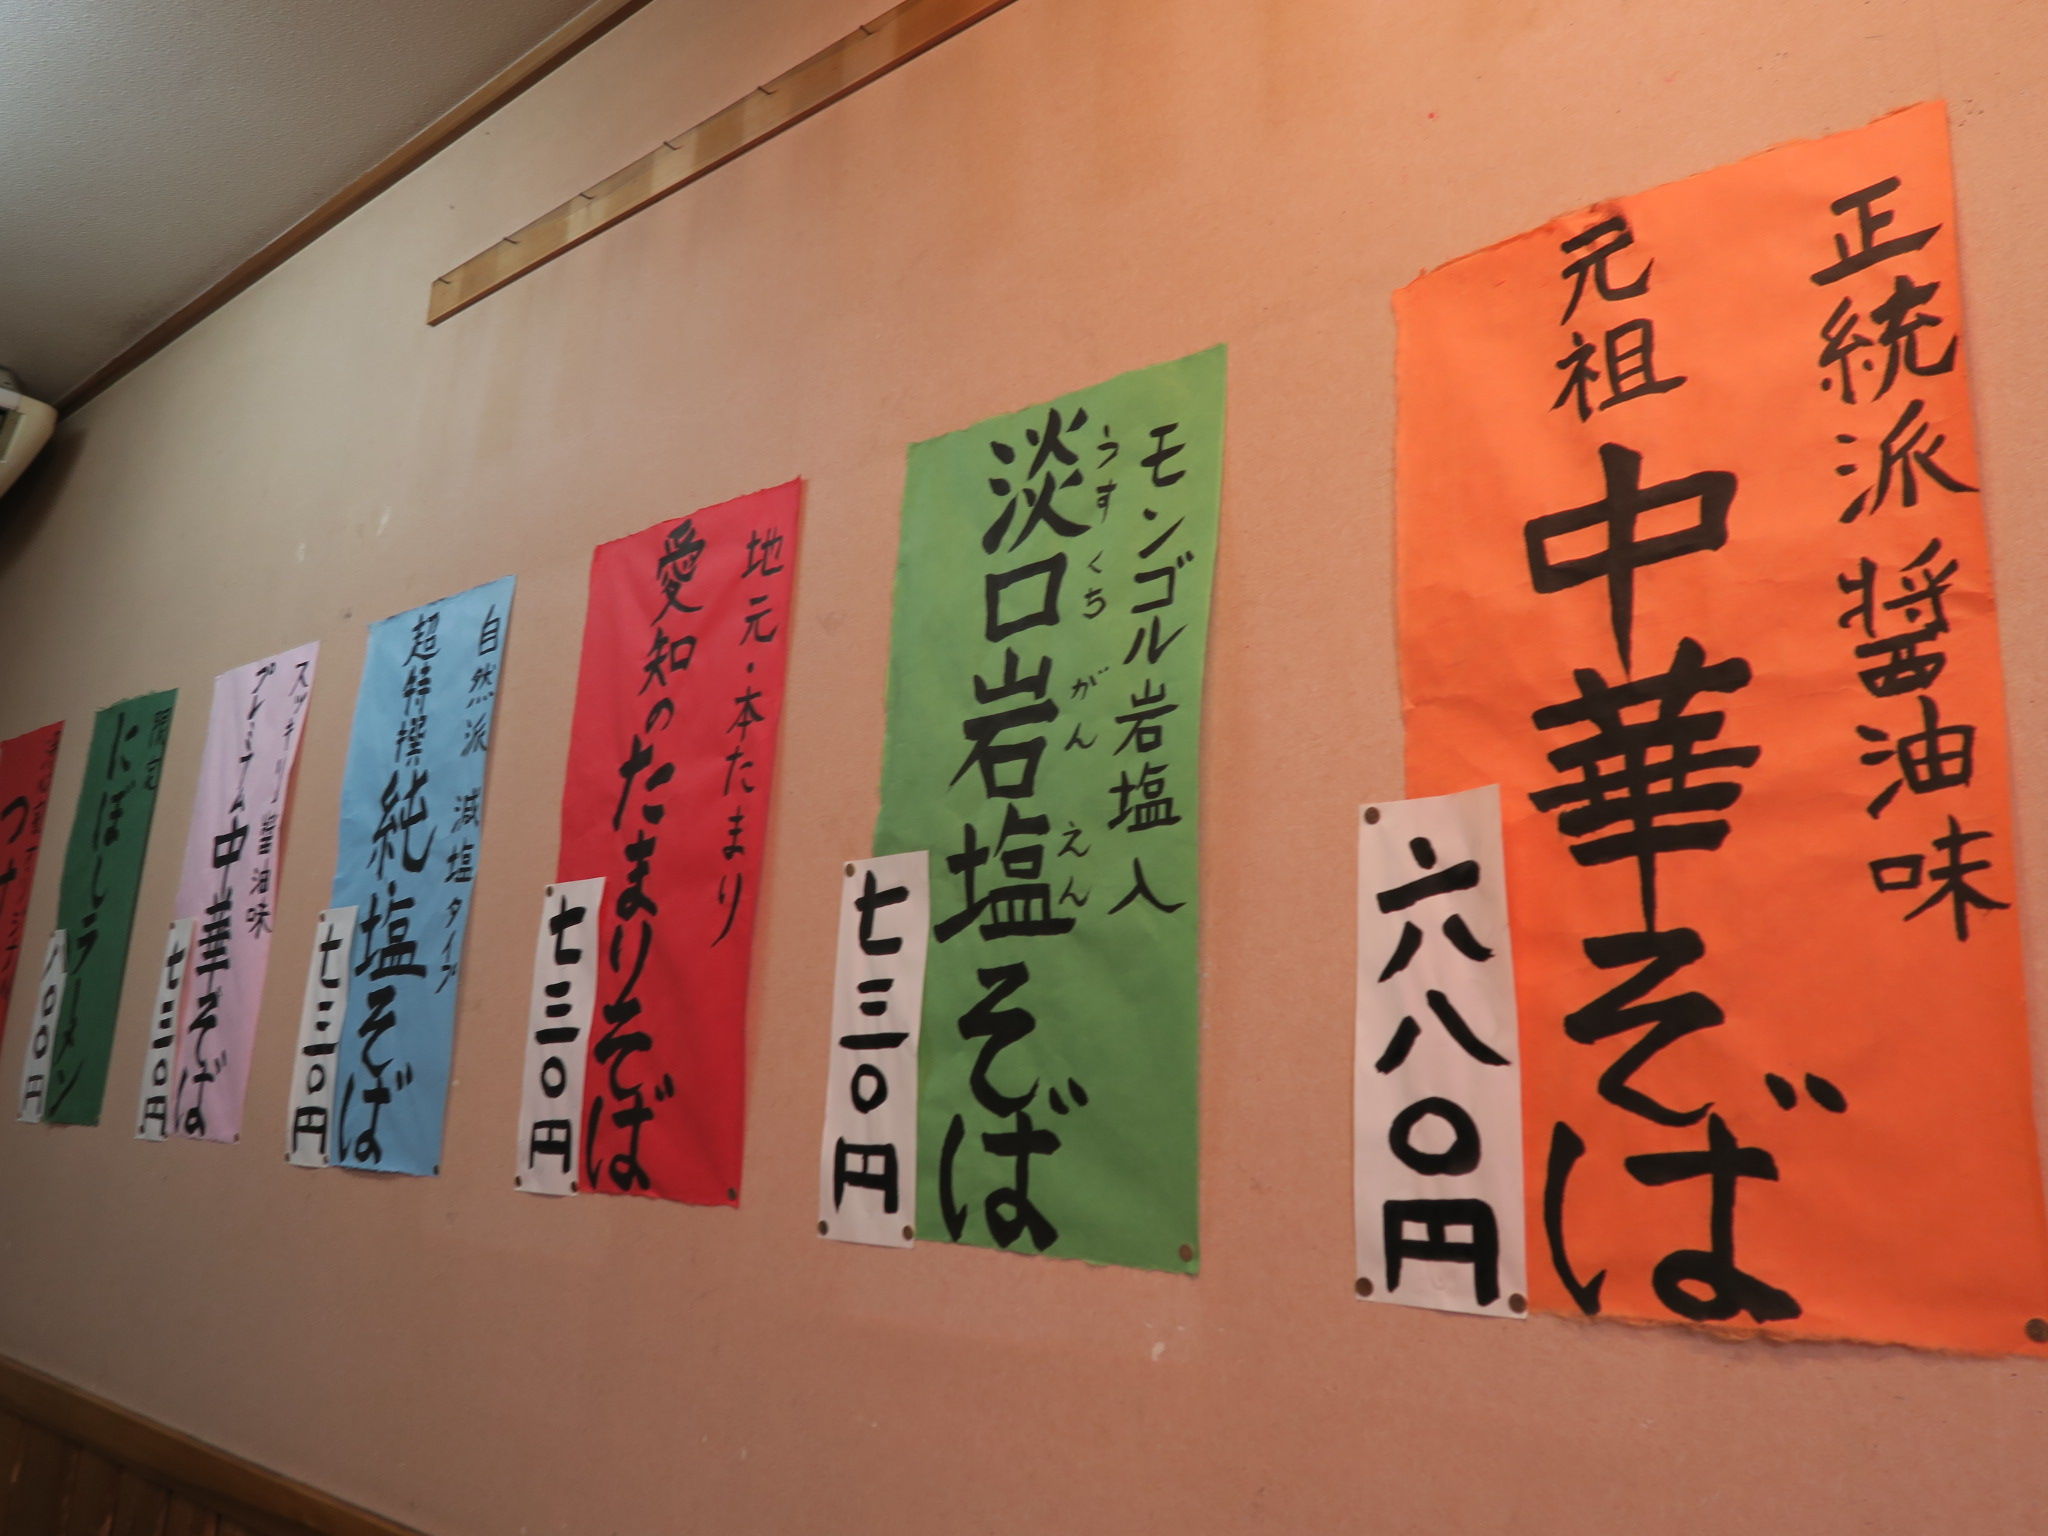 正統派 醤油味
元祖 中華そば
六八〇円
モンゴル岩塩入
うすくち がん えん
淡口岩塩そば
七三〇円
地元・本たまり
愛知のたまりそば
七三〇円
自然派 減塩タイプ
超特撰 純塩そば
七三〇円
スッキリ醤油味
プレミアム中華そば
七三〇円
にぼしラーメン
八〇〇円